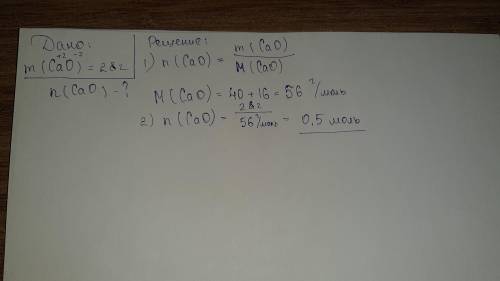 Дано:
+2 -2
m(CaO) = 28г
n(CaO) - ?
Решение:
1) n(CaO) = m(CaO) / M(CaO)
M(CaO) = 40 + 16 = 56 г/моль
2) n(CaO) = 28г / 56 г/моль = 0,5 моль